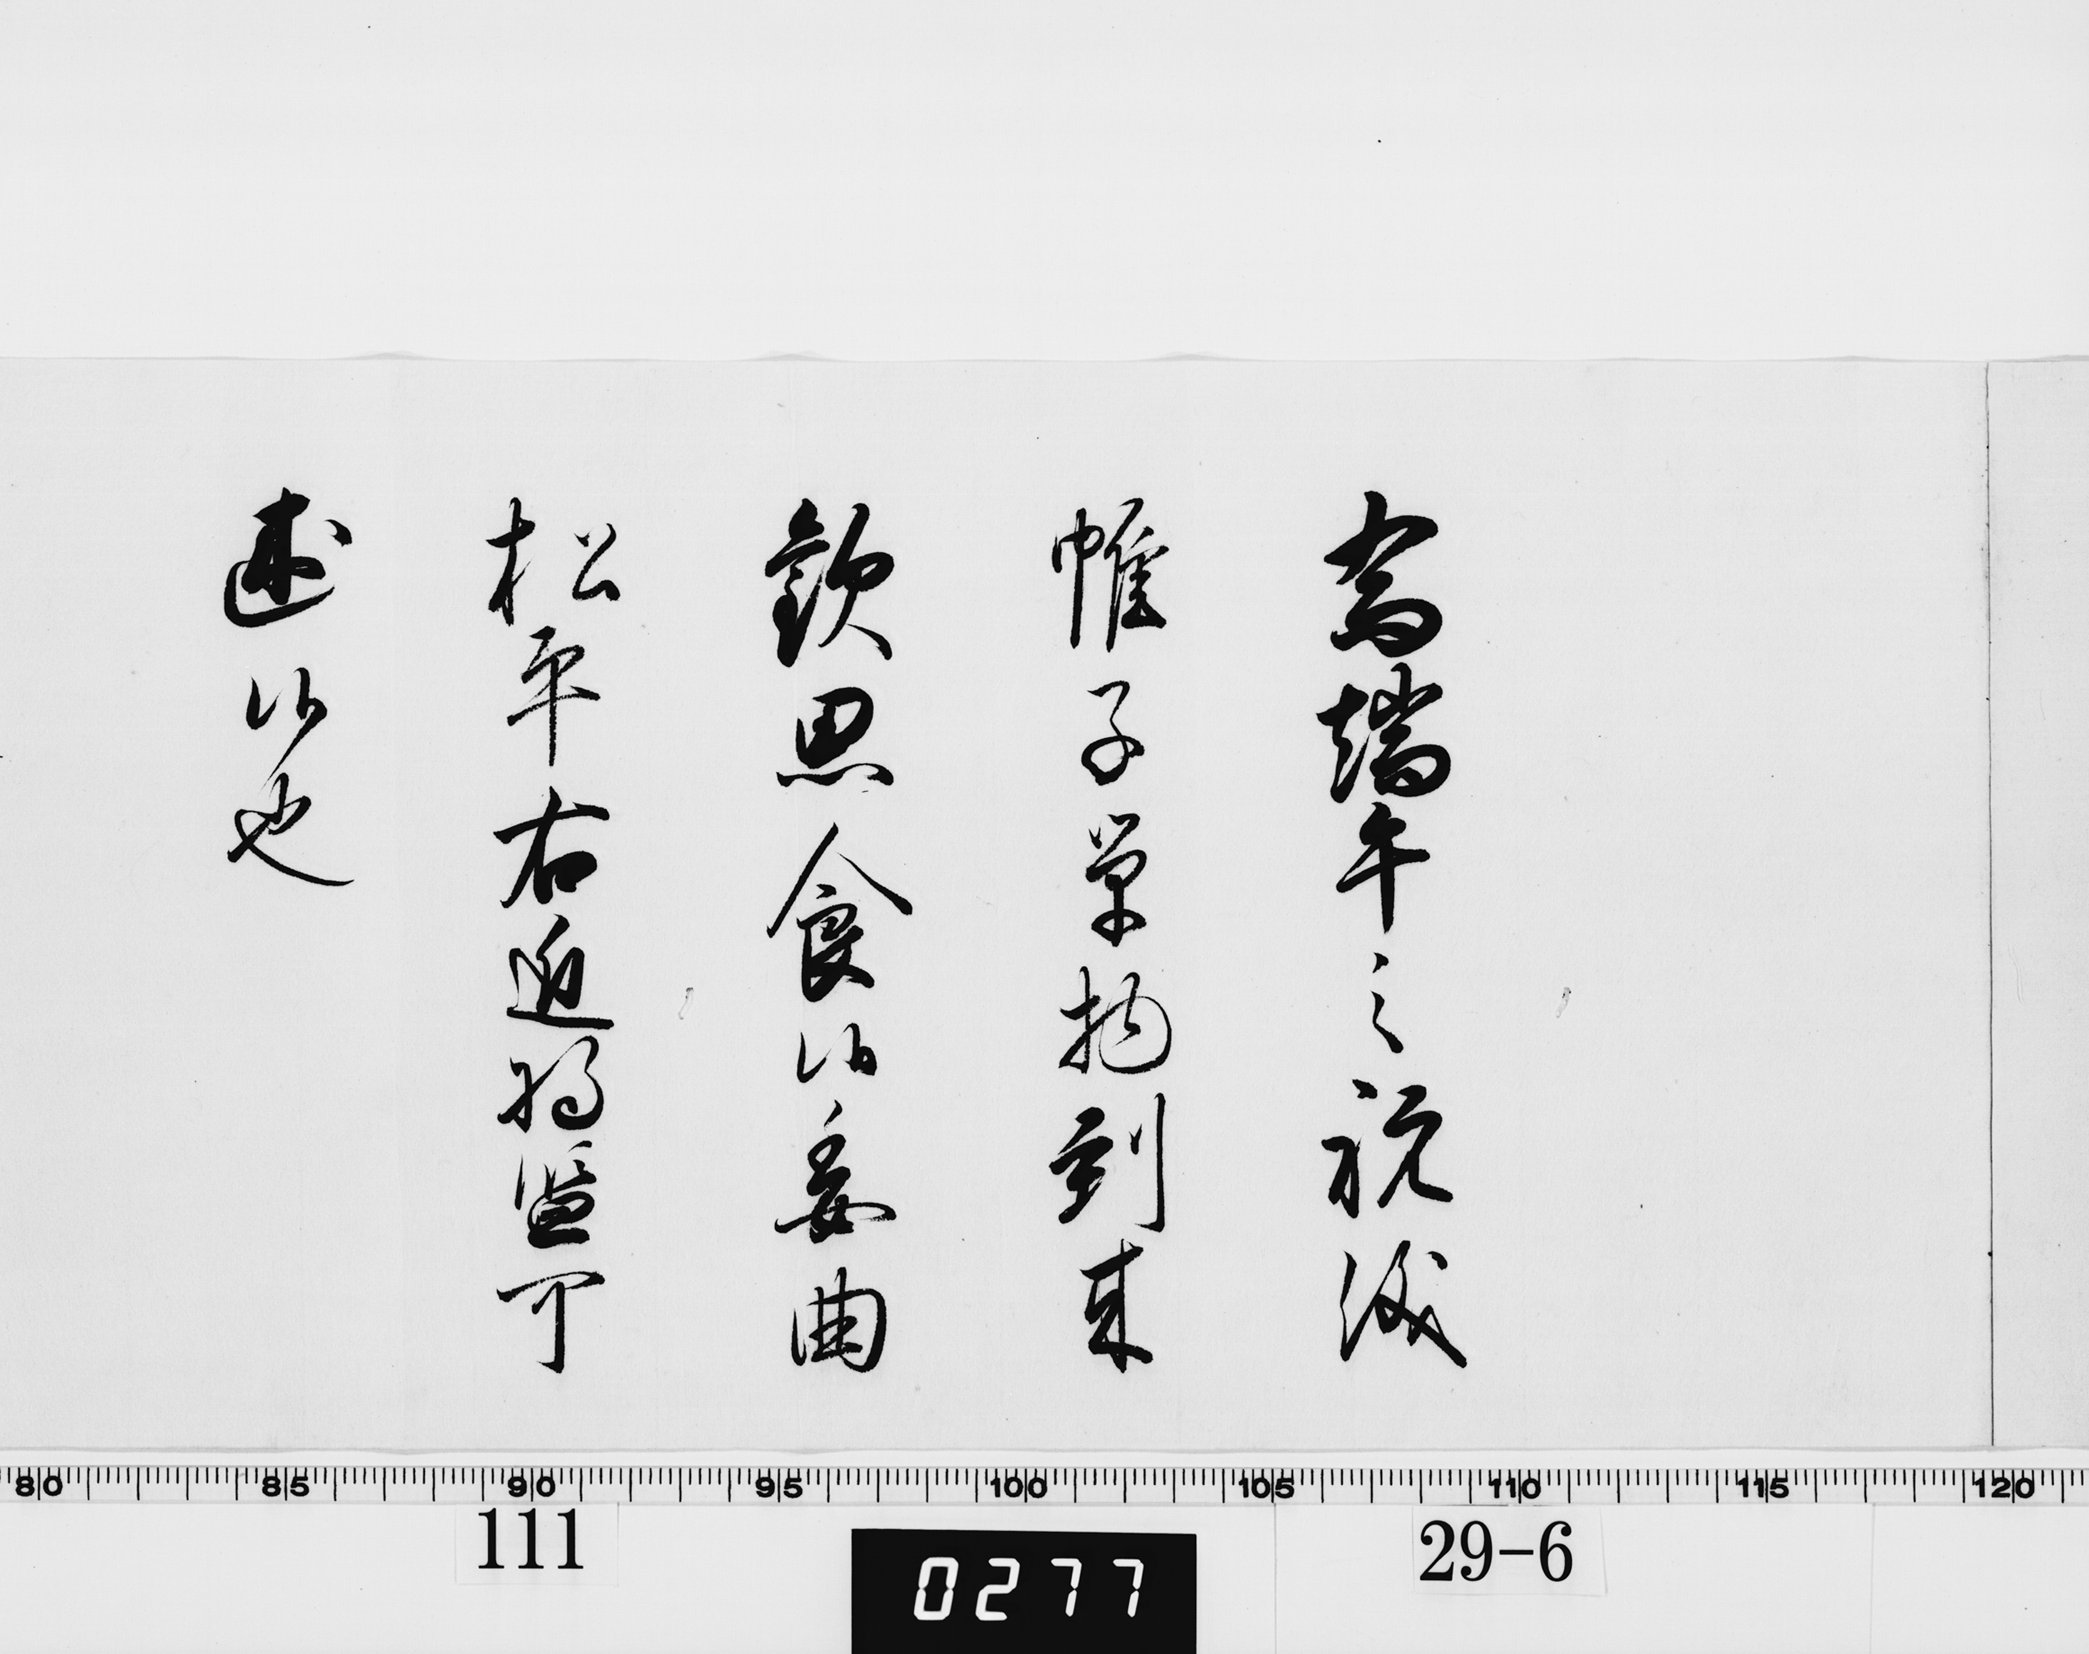 為端午之祝儀
帷子単物到来
歓思食候委曲
松平右近将監可
述候也
80 85 90 95 100 105 110 115 120
111
0277
29-6